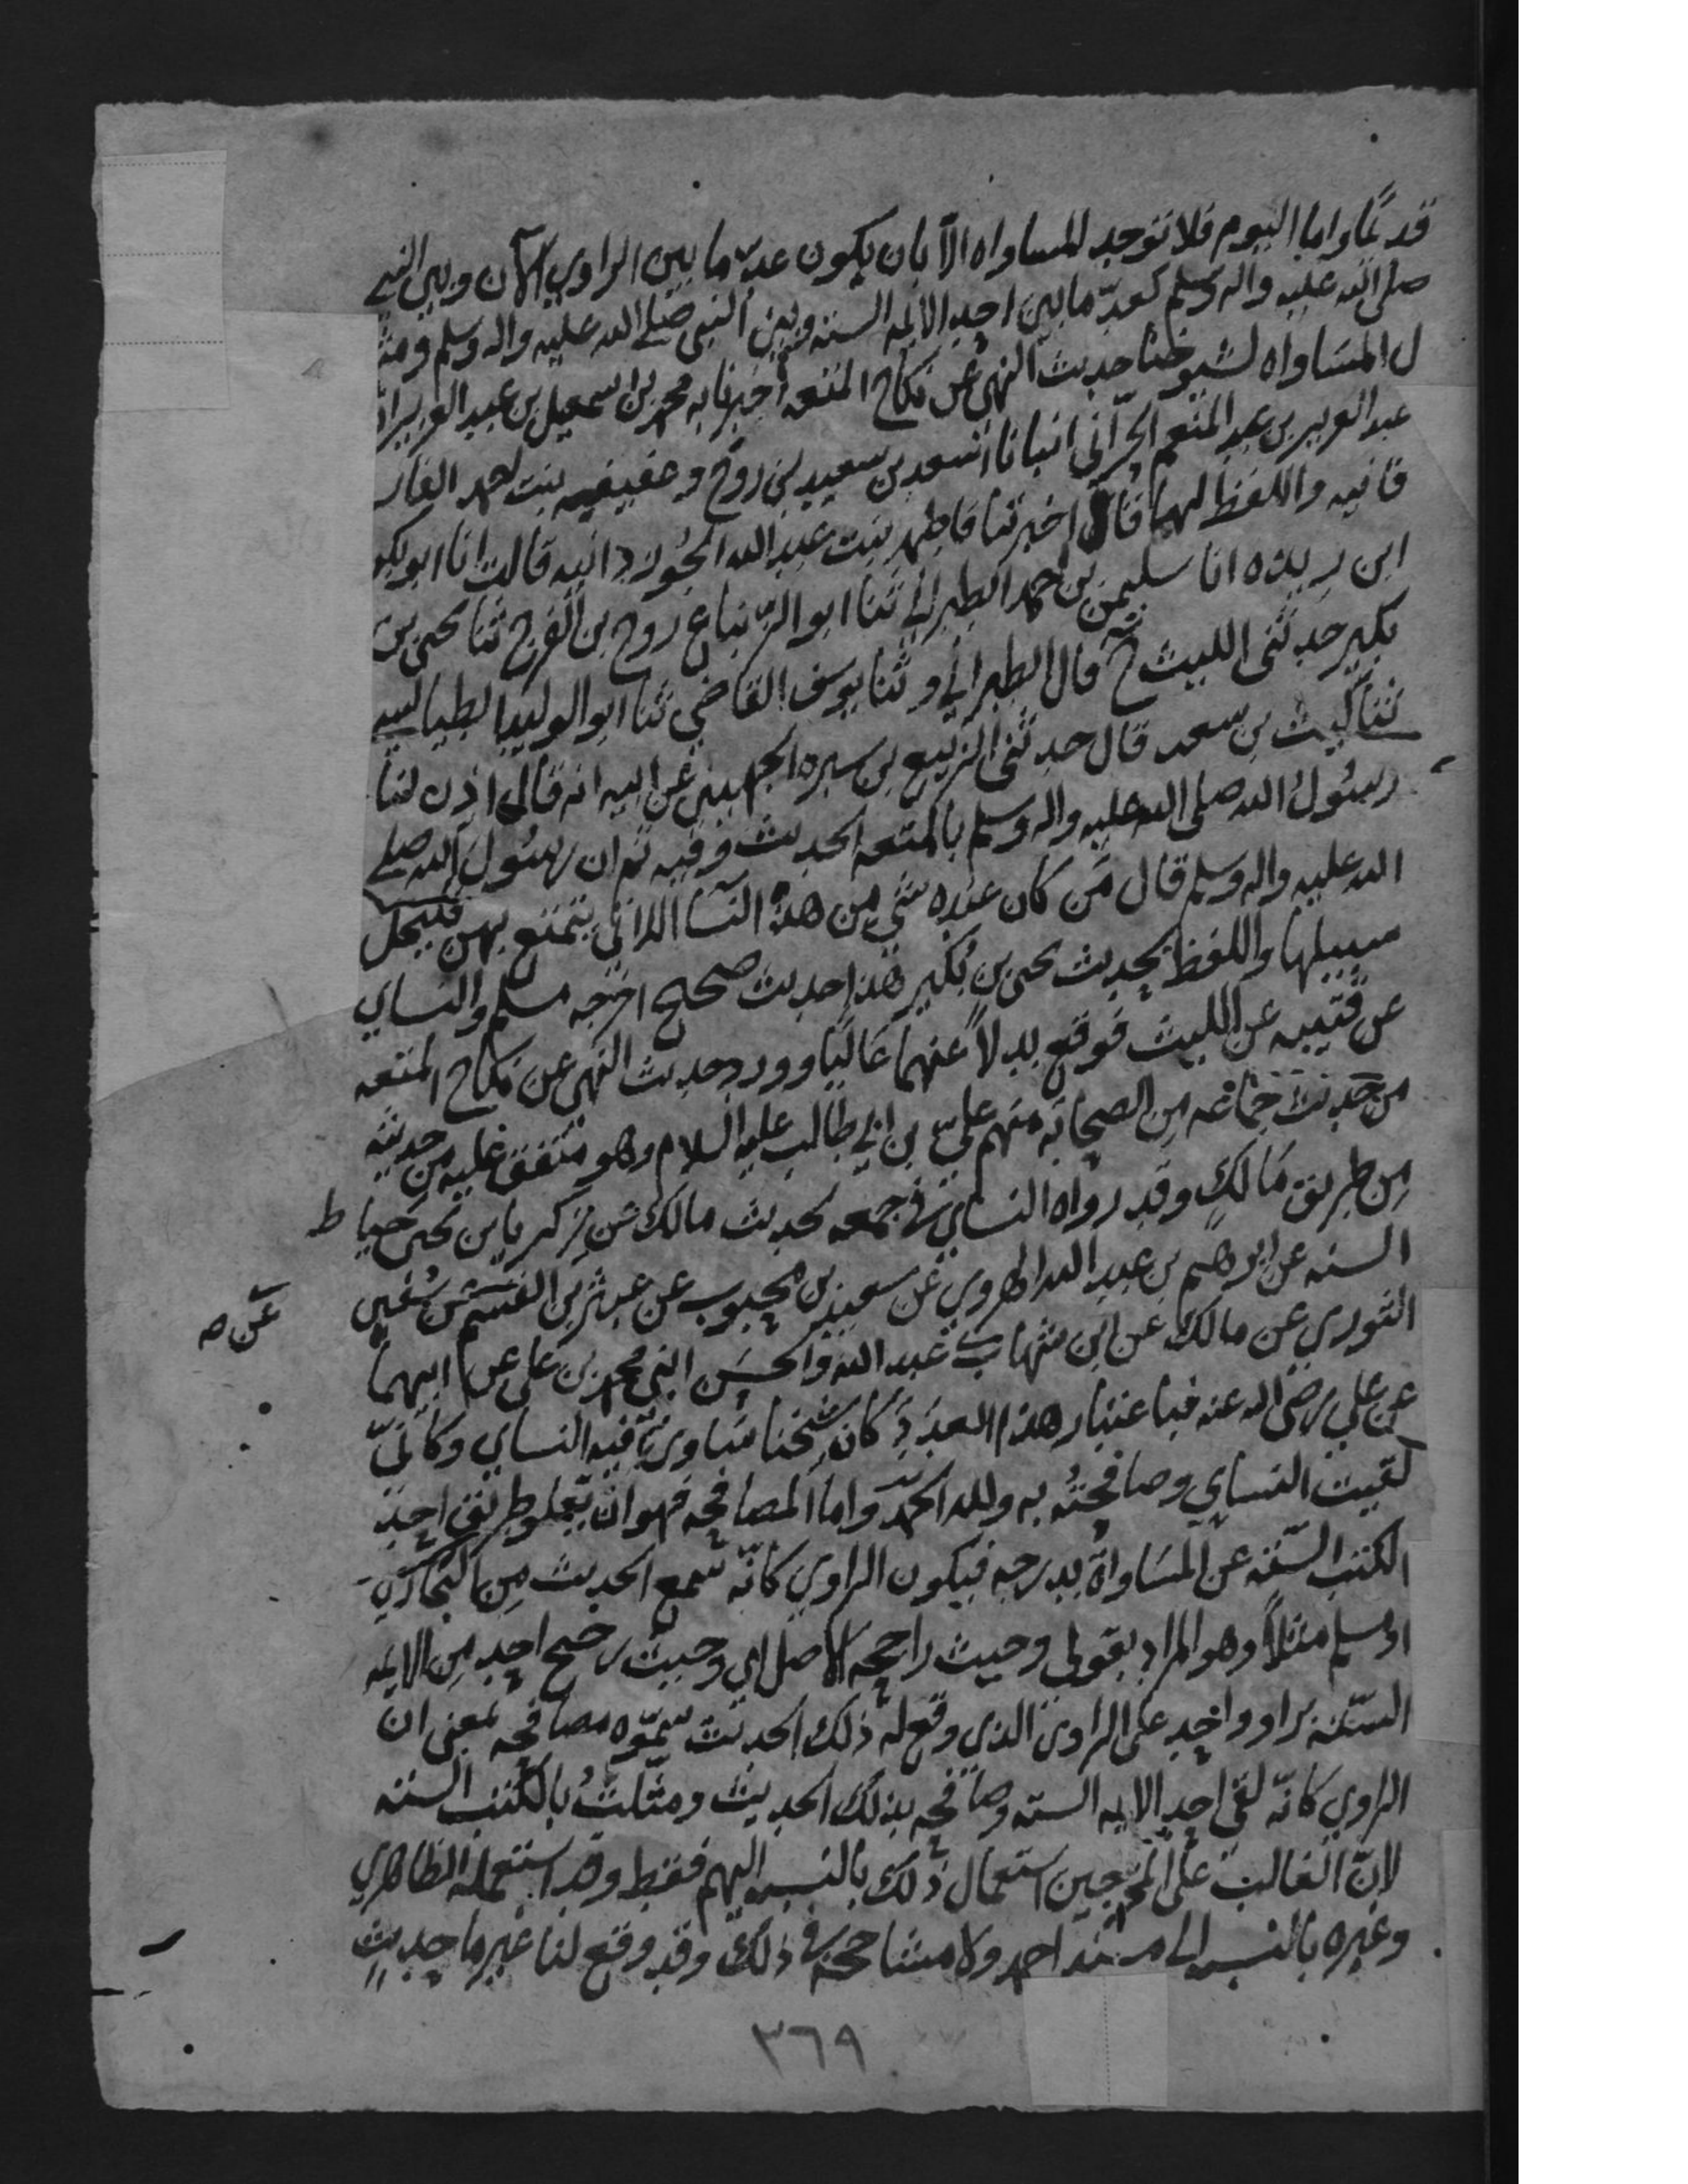 قديمًا واما اليوم فلا توجد المساواه الا بان يكون عدّ ما بين الراوي الآن وبين النبي
صلى الله عليه واله وسلم كعدّ ما بين احد الايمه السته وبين النبي صلى الله عليه واله وسلم ومثا
ل المساواه لشيوخنا حديث النهي عن نكاح المتعه اخبرنا به محمد بن اسمعيل بن عبد العزيز انا
عبد العزيز بن عبد المنعم الحرّاني انبانا اسعد بن سعيد بن روح وعفيفه بنت احمد الفار
فانيه واللفظ لهما قالا اخبرتنا فاطمه بنت عبد الله الجُوزدانيه قالت انا ابو بكر
ابن ريذه انا سليمن بن احمد الطبراني ثنا ابو الزنباع روح بن الفرج ثنا يحيى بن
بكير حدثني الليث ح قال الطبراني وثنا يوسف القاضي ثنا ابو الوليد الطيالسي
ثنا ليث بن سعد قال حدثني الربيع بن سبره الجهيني عن ابيه انه قال اذن لنا
رسُول الله صلى الله عليه واله وسلم بالمتعه الحديث وفيه ثم ان رسُول الله صلى
الله عليه واله وسلم قال من كان عنده شي من هذه النسا اللاتي يتمتع بهن فليخل
سبيلها واللفظ لحديث يحيى بن بُكير هذا حديث صحيح اخرجه مسلم والنساي
عن قتيبه عن الليث فوقع بدلاً عنهما عاليًا وورد حديث النهي عن نكاح المتعه
من حديث جماعه من الصحابه منهم علي بن ابي طالب عليه السلام وهو متفق عليه من حديثه
من طريق مالك وقد رواه النساي في جمعه لحديث مالك عن زكريا بن يحيى خياط
السنه عن ابرهيم بن عبد الله الهروي عن سعيد بن محبوب عن عبثر بن القسم عن سُفين
الثوري عن مالك عن ابن شهاب عن عبد الله والحسن ابني محمد بن علي عن ابيهما
عن علي رضي الله عنه فباعتبار هذا العدد كان شيخنا ساوى فيه النساي وكاني
لقيت النساي وصافحتُه به ولله الحمد واما المصافحه فهو ان تعلو طريق احد
الكتب السّته عن المسَاواة بدرجه فيكون الراوي كانّه سمع الحديث من البخاري
او مسلم مثلاً وهو المراد بقولي وحيث راجحه الاصل اي وحيث رجح احد من الايمه
السّته براو واحد على الراوي الذي وقع له ذلك الحديث سمّوه مصافحه بمعنى ان
الراوي كانّه لقي احد الايمه السته وصافحه بذلك الحديث ومثّلتُ بالكتب السته
لانّ الغالب على المخرّجين استعمال ذلك بالنسبه اليهم فقط وقد استعمله الظاهري
وغيره بالنسبه الى مسند احمد ولا مشاححه في ذلك وقد وقع لنا غير ما حديث
٣٦٩